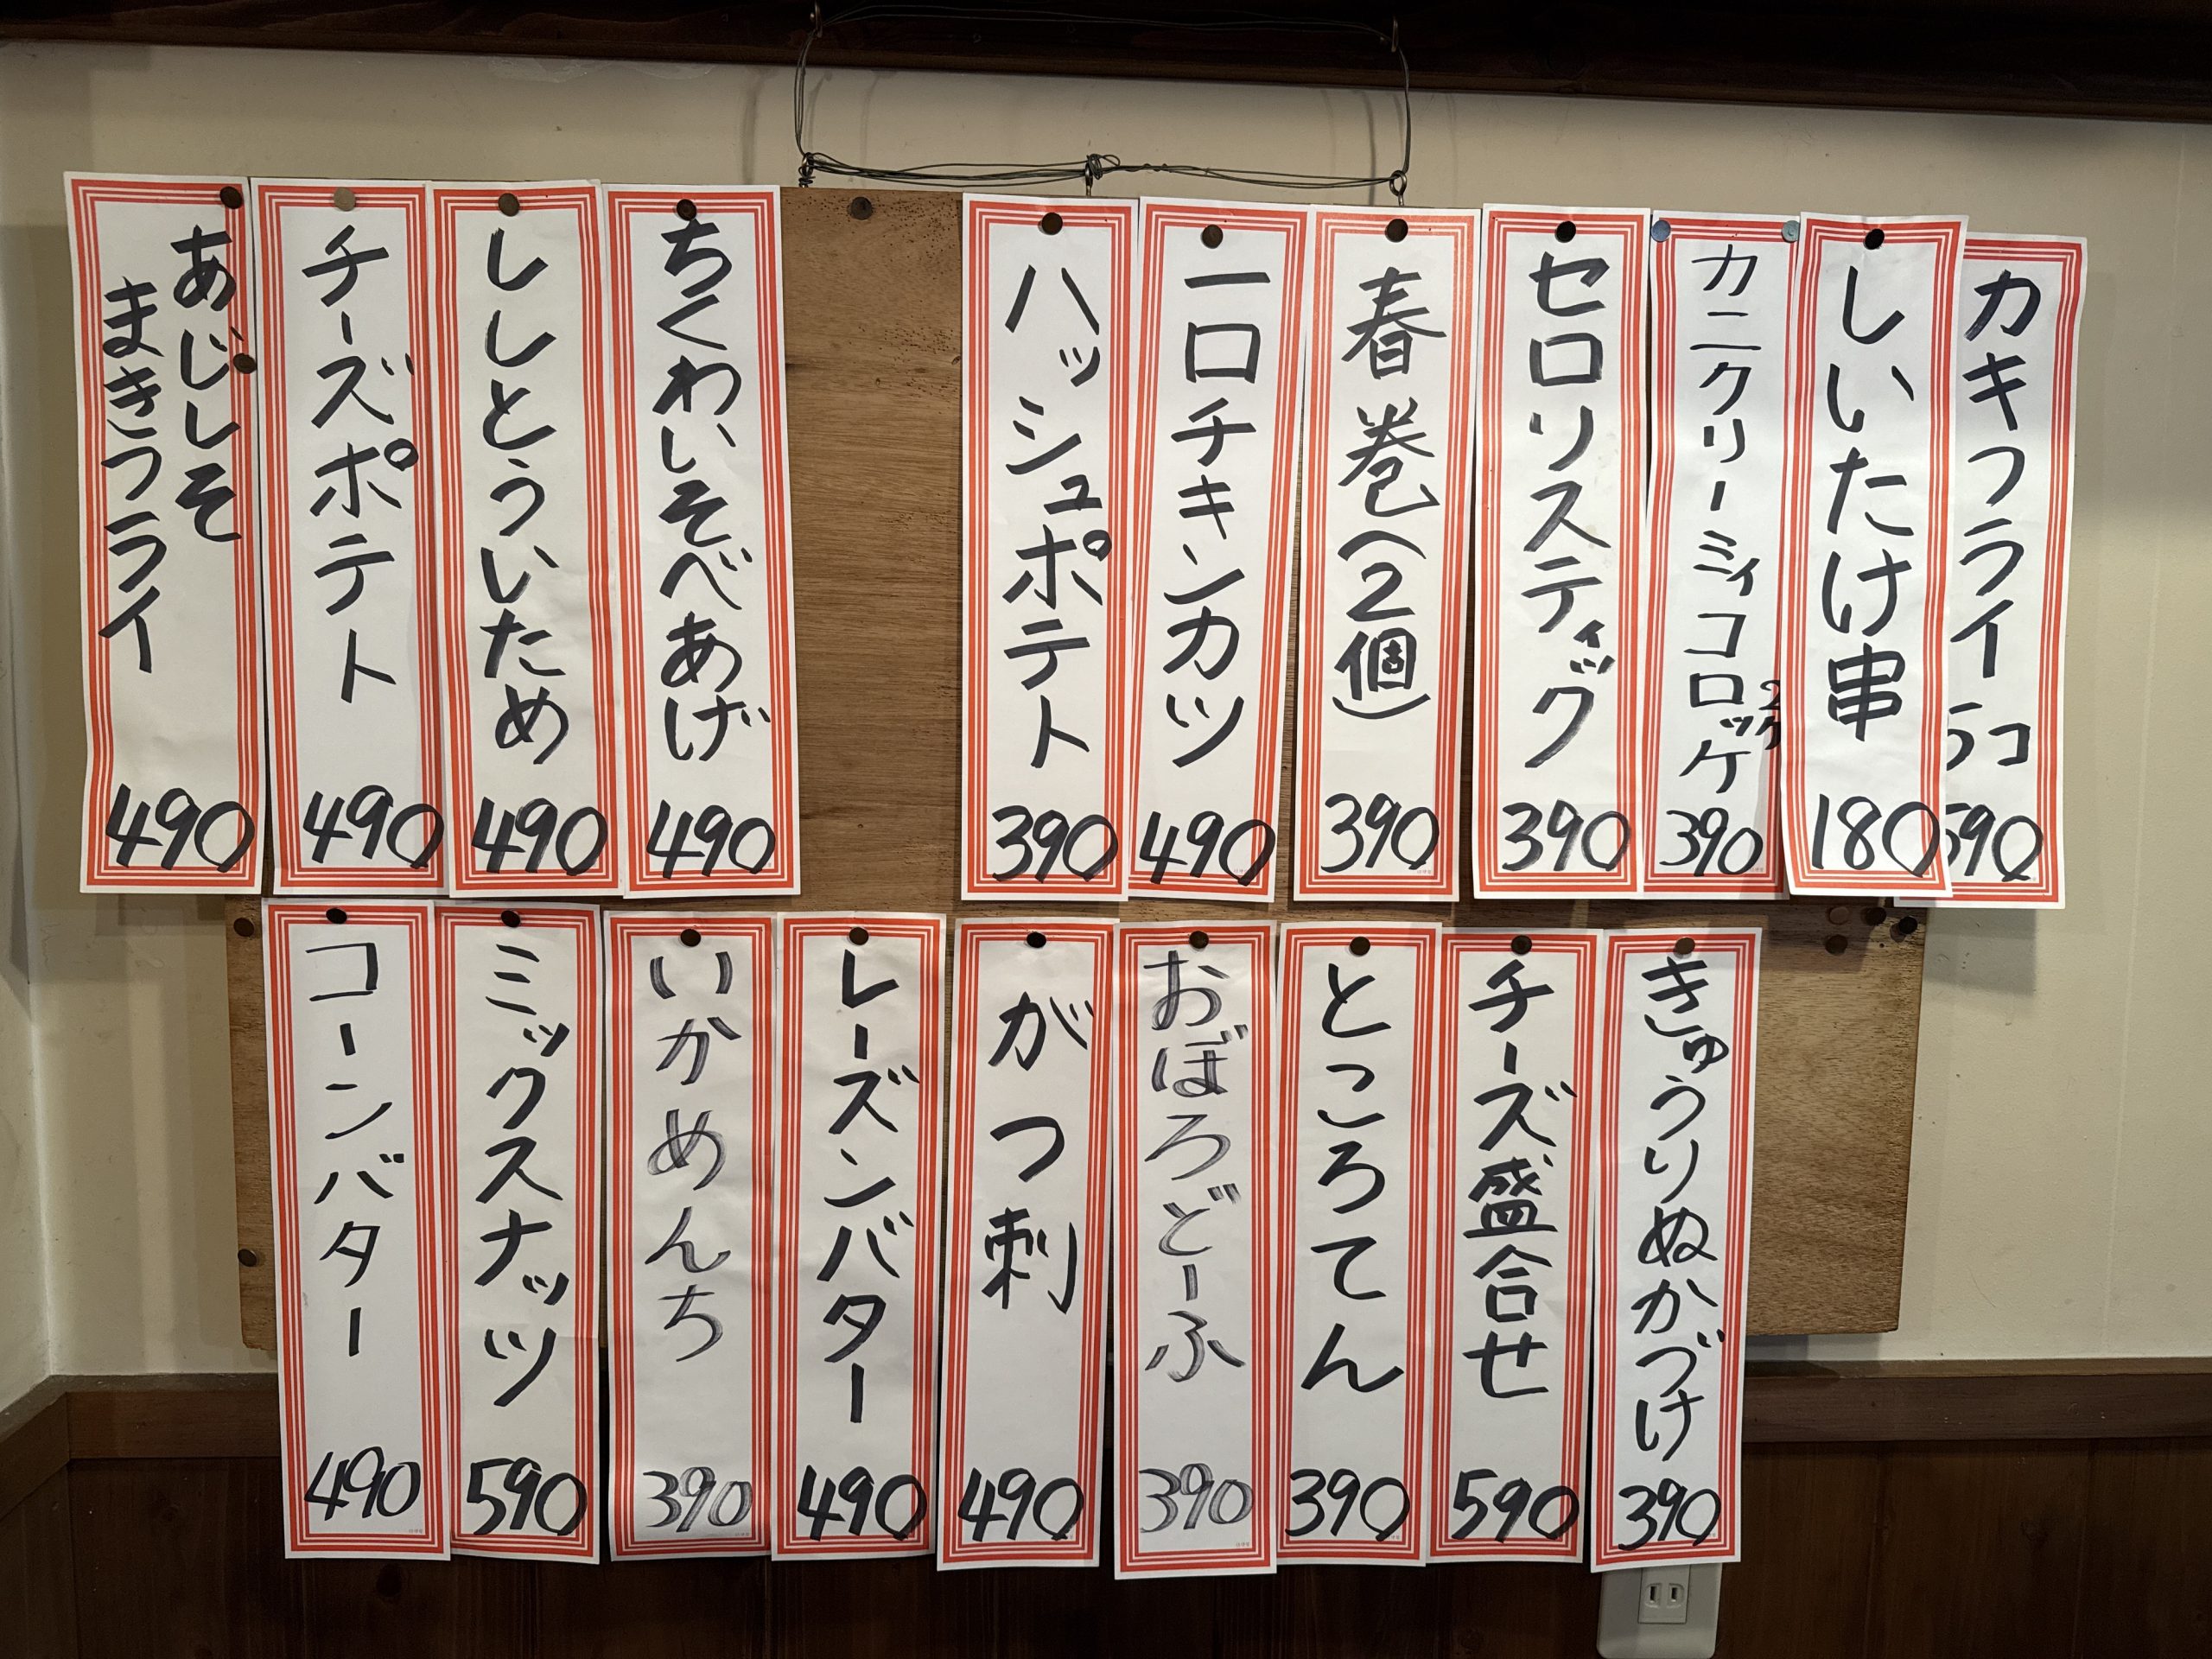 カキフライ
5コ
590
しいたけ串
180
カニクリーミィコロッケ
2ケ
390
セロリスティック
390
春巻(2個)
390
一口チキンカツ
490
ハッシュポテト
390
ちくわいそべあげ
490
ししとういため
490
チーズポテト
490
あじしそ
まきフライ
490
きゅうりぬかづけ
390
チーズ盛合せ
590
ところてん
390
おぼろどーふ
390
がつ刺
490
レーズンバター
490
いかめんち
390
ミックスナッツ
590
コーンバター
490